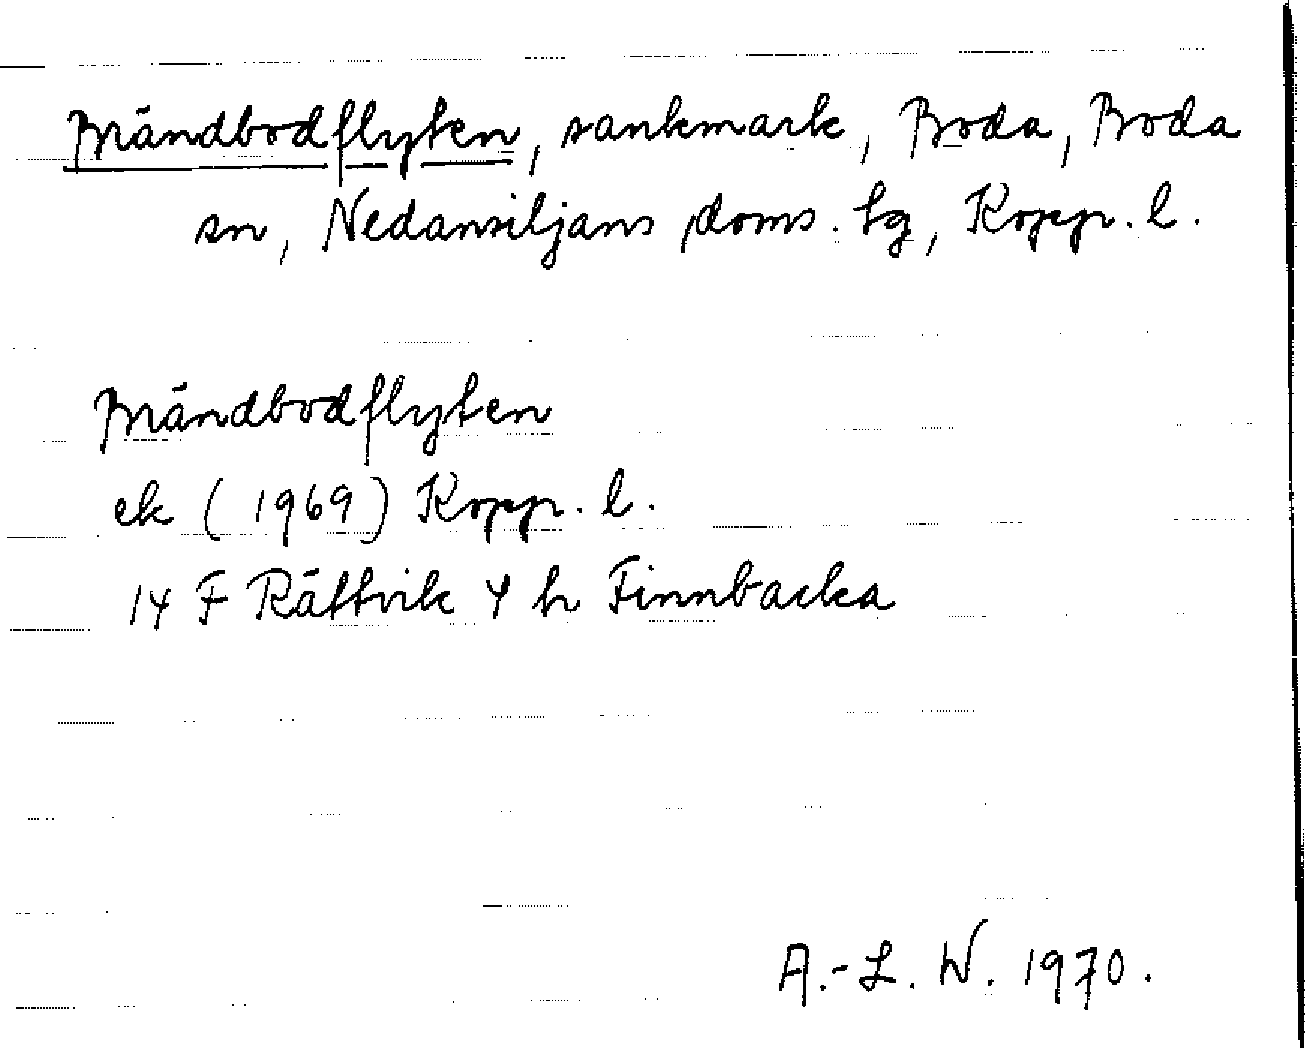 Brändbodflyten, sankmark, Boda, Boda
sn, Nedansiljans doms. tg, Kopp. l.
Brändbodflyten
ek (1969) Kopp. l.
14 F Rättvik 4 h Finnbacka
A.-L. W. 1970.